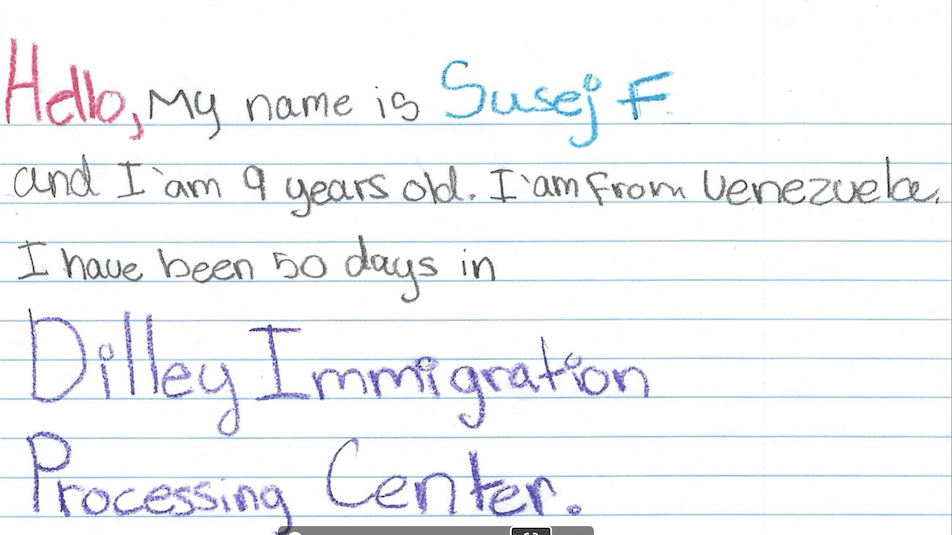 Hello, My name is Susej F.
and I'am 9 years old. I'am from Venezuela.
I have been 50 days in
Dilley Immigration
Processing Center.